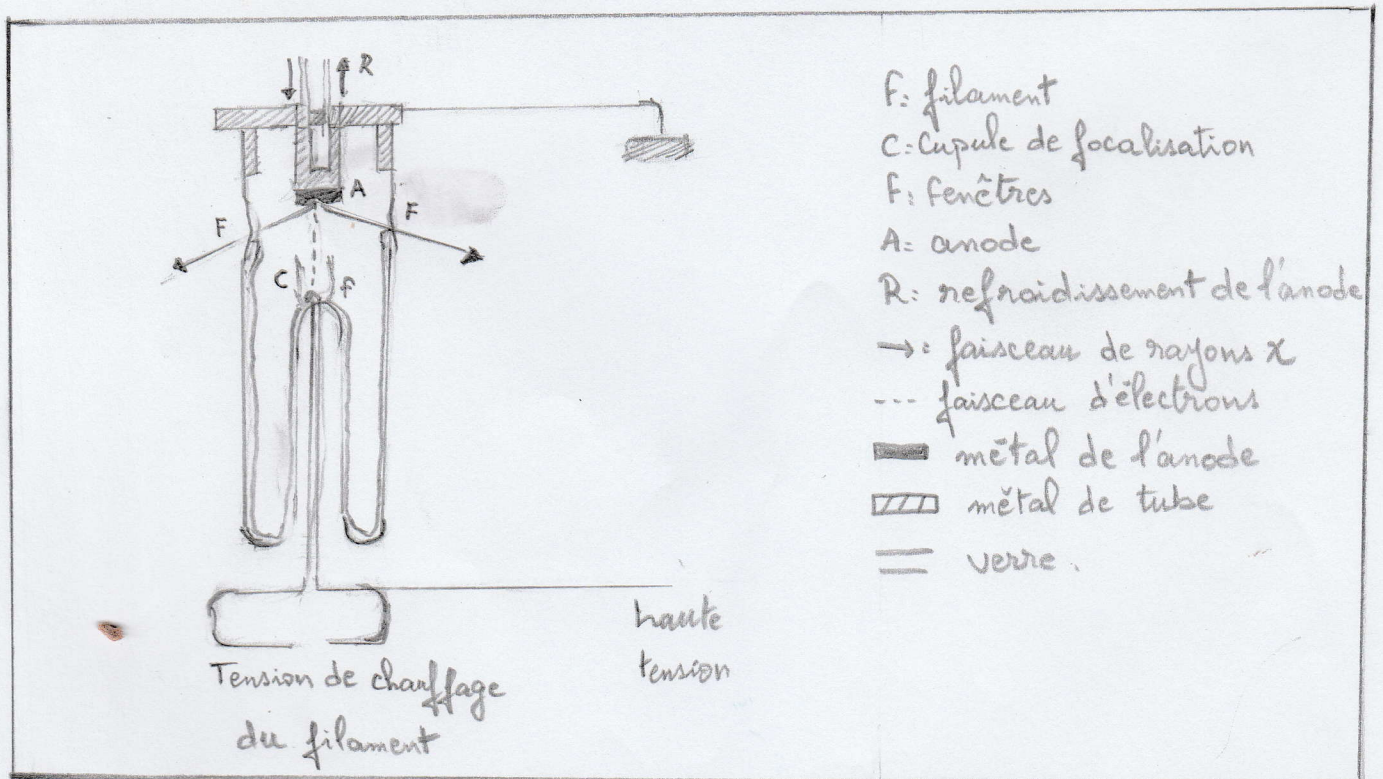 R
A
F
F
C
F
haute
tension
Tension de chauffage
du filament
F: filament
C: Cupule de focalisation
F: fenêtres
A: anode
R: refroidissement de l'anode
→: faisceau de rayons X
--- faisceau d'électrons
métal de l'anode
métal de tube
verre.